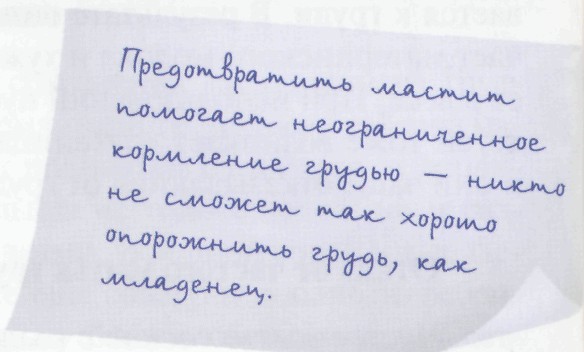 Предотвратить мастит
помогает неограниченное
кормление грудью — никто
не сможет так хорошо
опорожнить грудь, как
младенец.